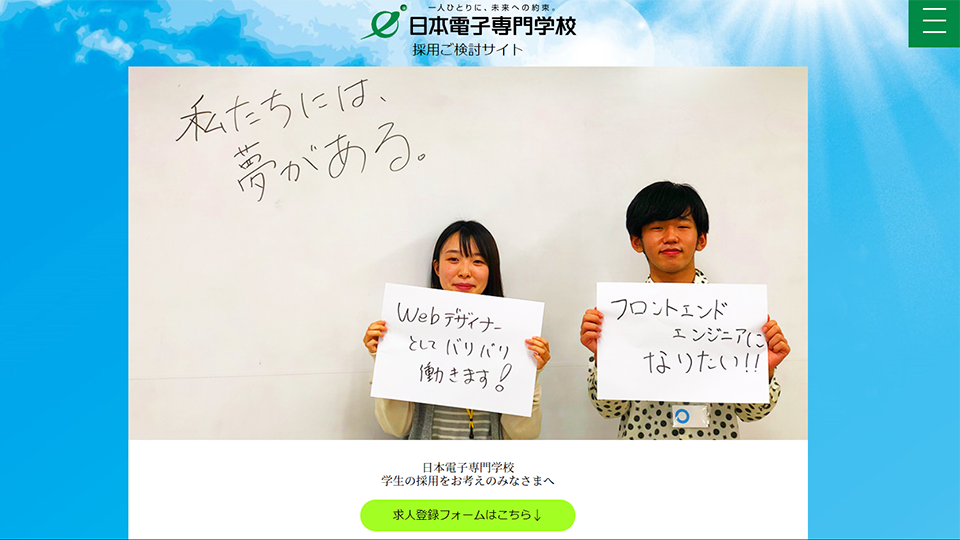 一人ひとりに、未来への約束。
日本電子専門学校
採用ご検討サイト
私たちには、
夢がある。
Webデザイナー
としてバリバリ
働きます!
フロントエンド
エンジニアに
なりたい!!
日本電子専門学校
学生の採用をお考えのみなさまへ
求人登録フォームはこちら↓